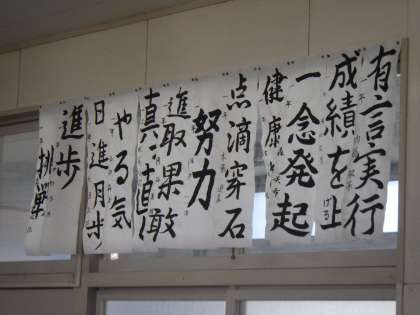 有言実行
成績を上げる
一念発起
健康
点滴穿石
努力
進取果敢
真直
やる気
日進月歩
進歩
挑戦